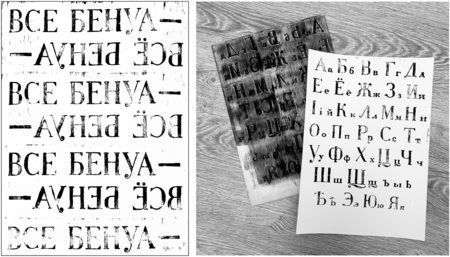 ВСЕ БЕНУА—
ВСЁ БЕНУА—
ВСЕ БЕНУА—
ВСЁ БЕНУА—
ВСЕ БЕНУА—
ВСЁ БЕНУА—
ВСЕ БЕНУА—
Аа Бб Вв Гг Дд
Ее Ёё Жж Зз Ии
Ii й Кк Лл Мм Нн
Оо Пп Рр Сс Тт
Уу Фф Хх Цц Чч
Шш Щщ Ъ ы ь
Ѣѣ Ээ Юю Яя